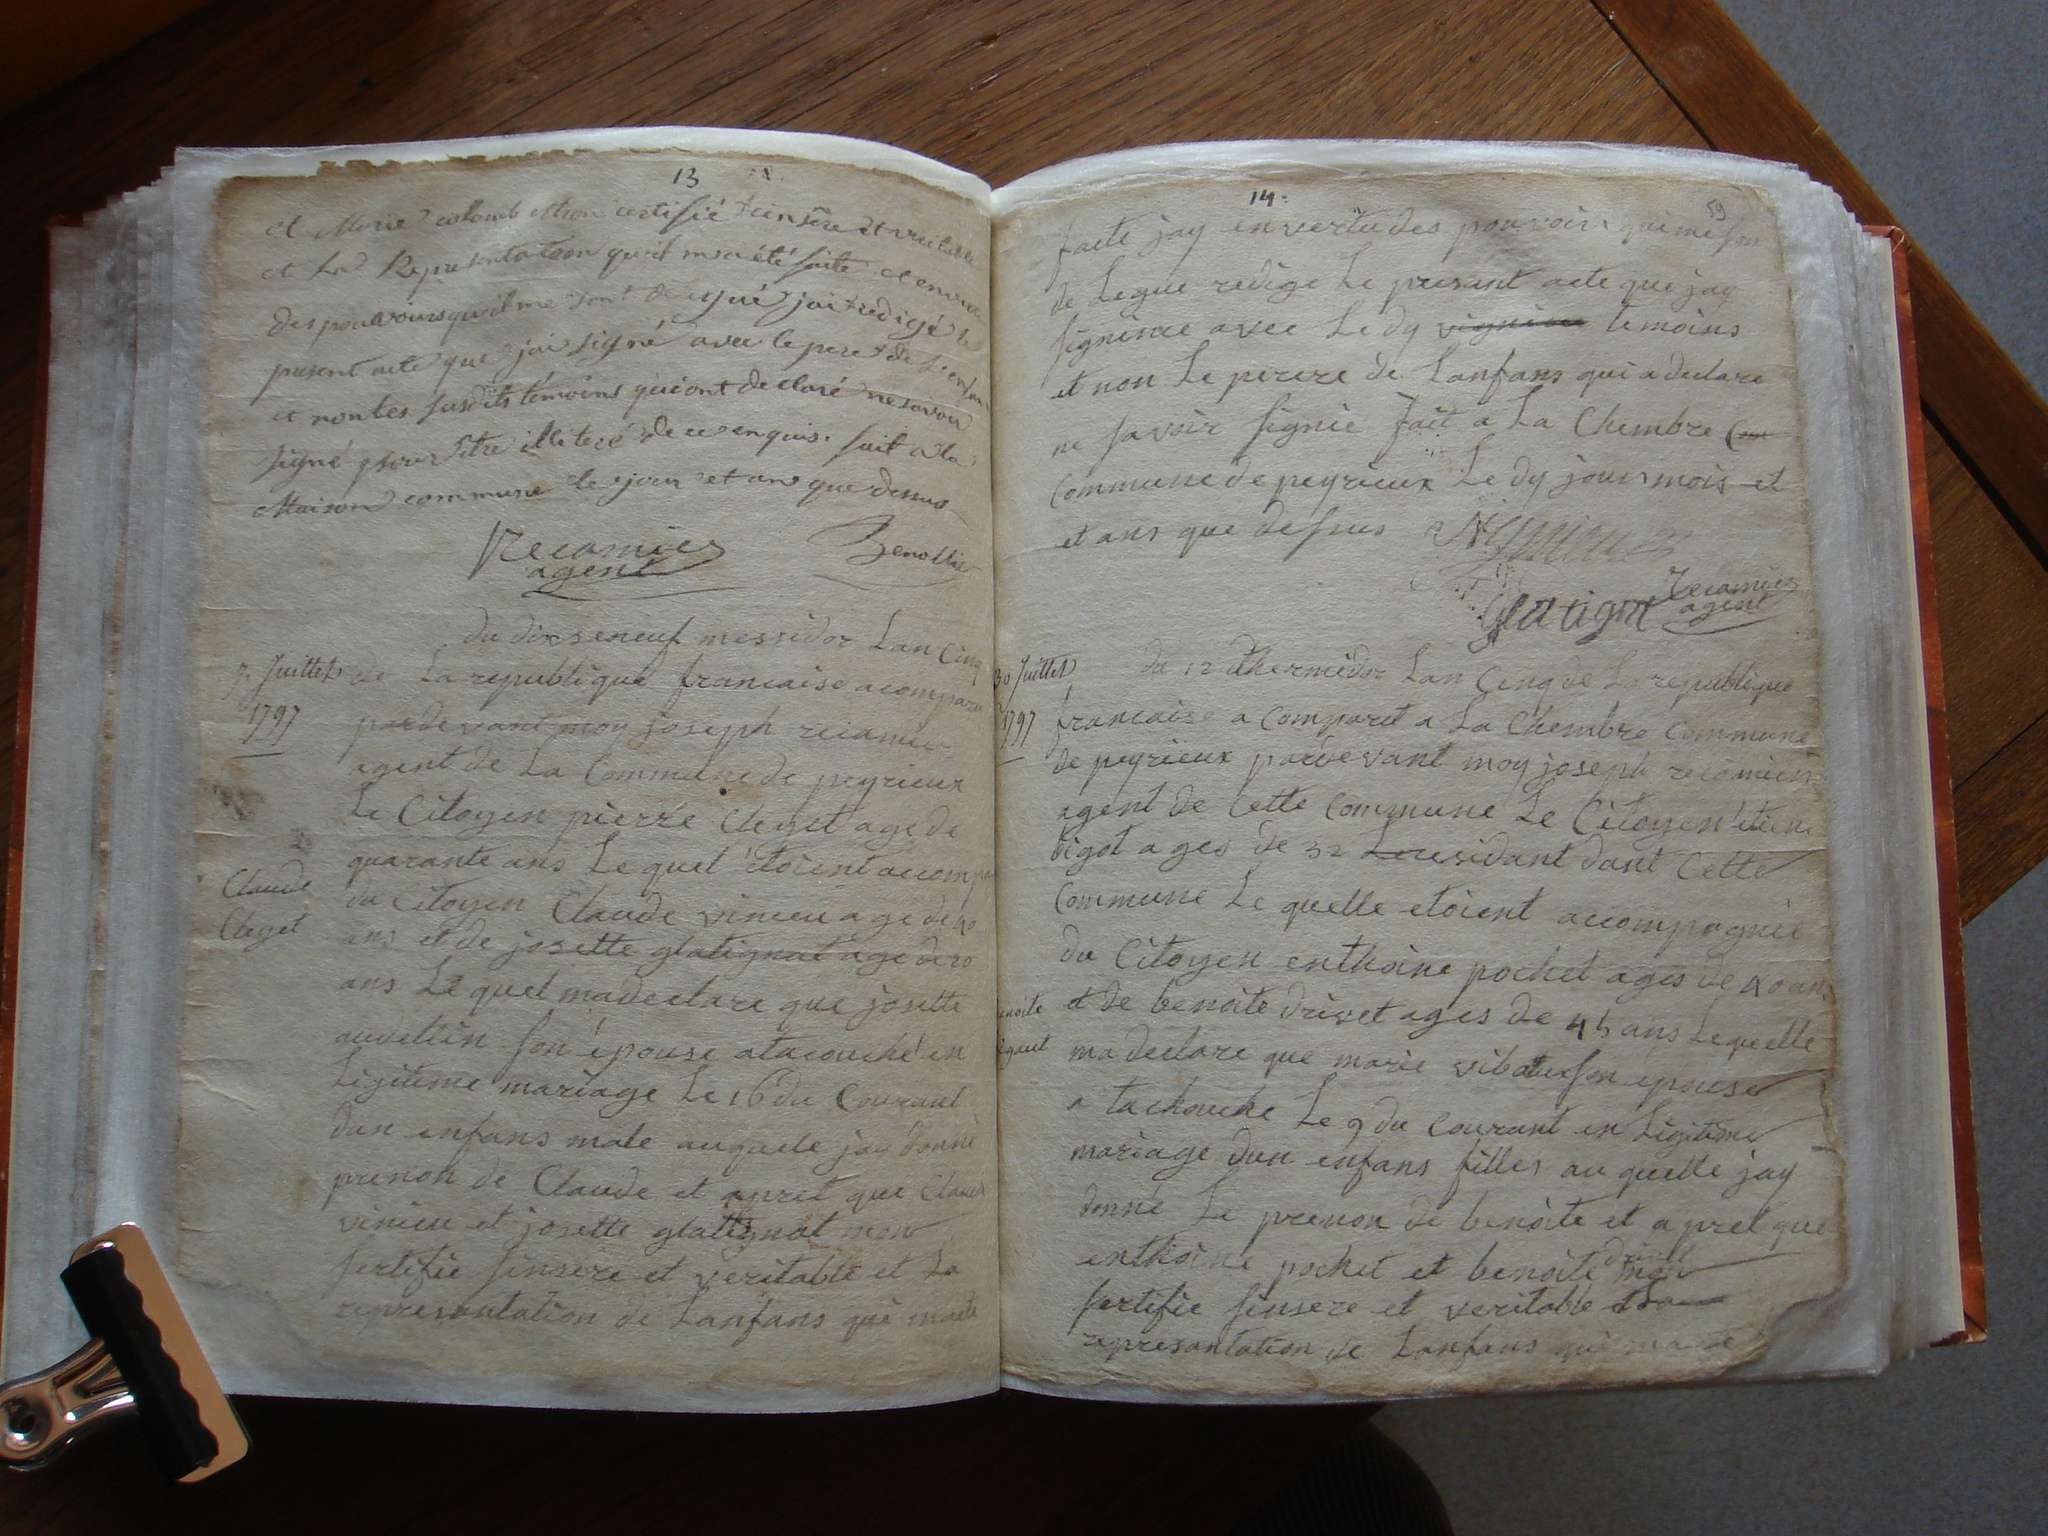 13
et Marie colomb certifié sincère et veritable
et la Representation qu'il m'a été faite et en vertu
des pouvoirs qu'il me sont delegué j'ai redigé le
present acte que j'ai signé avec le pere de l'enfan
et non les susdits témoins qui ont declaré ne savoir
signé pour être illiteré de ce enquis. fait a la
Maison commune le jour et an que dessus
Recamier
agent
Benollin
du dixseneuf messidor Lan Cinq
7 Juillet
1797
de La republique francaise a comparu
pardevant moy joseph recamier
agent de La Commune de peyrieux
Le Citoyen pierre Cleyet age de
quarante ans Le quel étoient accomp
Claude
Cleyet
du Citoyen Claude vinieu age de 40
ans et de josette glatignat age de 20
ans Le quel ma declare que josette
auvellin son épouse atacouché en
Legitime mariage Le 16 du Courant
dun enfans male auquele jay donné
prenon de Claude et apret que Claude
vinieu et josette glatignat mon
sertifie sinsere et veritable et La
represantation de Lanfans qui maete
14
59
faite jay en vertu des pouvoir qui me son
de Legue redige Le presant acte que jay
signere avec Le dy vignieu temoins
et non Le perere de Lanfans qui a declare
ne savoir signie fait a La Chembre
Commune de peyrieux Le dy jour mois et
et ans que dessus
glatignat
recamier
agent
30 Juillet
1797
du 12 thermidor Lan Cinq de La republique
francaise a Comparet a La Chembre Commune
de peyrieux pardevant moy joseph recamier
agent de Cette Commune Le Citoyen étien
bigot ages de 32 residant dant Cette
Commune Le quelle etoient accompagnié
du Citoyen enthoine pochet ages de 40 ans
et de benoite drivet ages de 45 ans Lequelle
ma declare que marie son epouse
a tachouche Le 9 du Courant en Legitime
mariage dun enfans filles au quelle jay
donné Le prenon de benoite et apret que
enthoine pochet et benoite drivet mon
sertifie sinsere et veritable et La
represantation de Lanfans qui ma ete